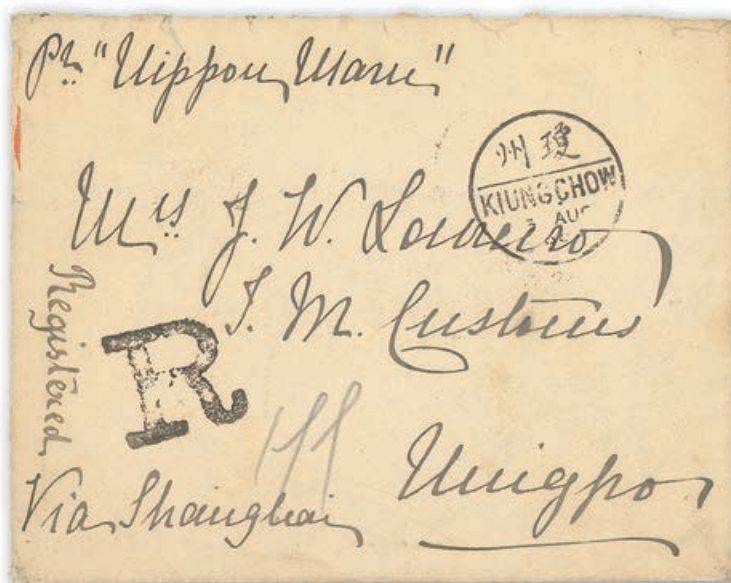 Pr. "Nippon Maru"
瓊州
KIUNGCHOW
AUG
Mrs. J. W. Loureiro
I. M. Customs
Registered
R
Ningpo
Via Shanghai